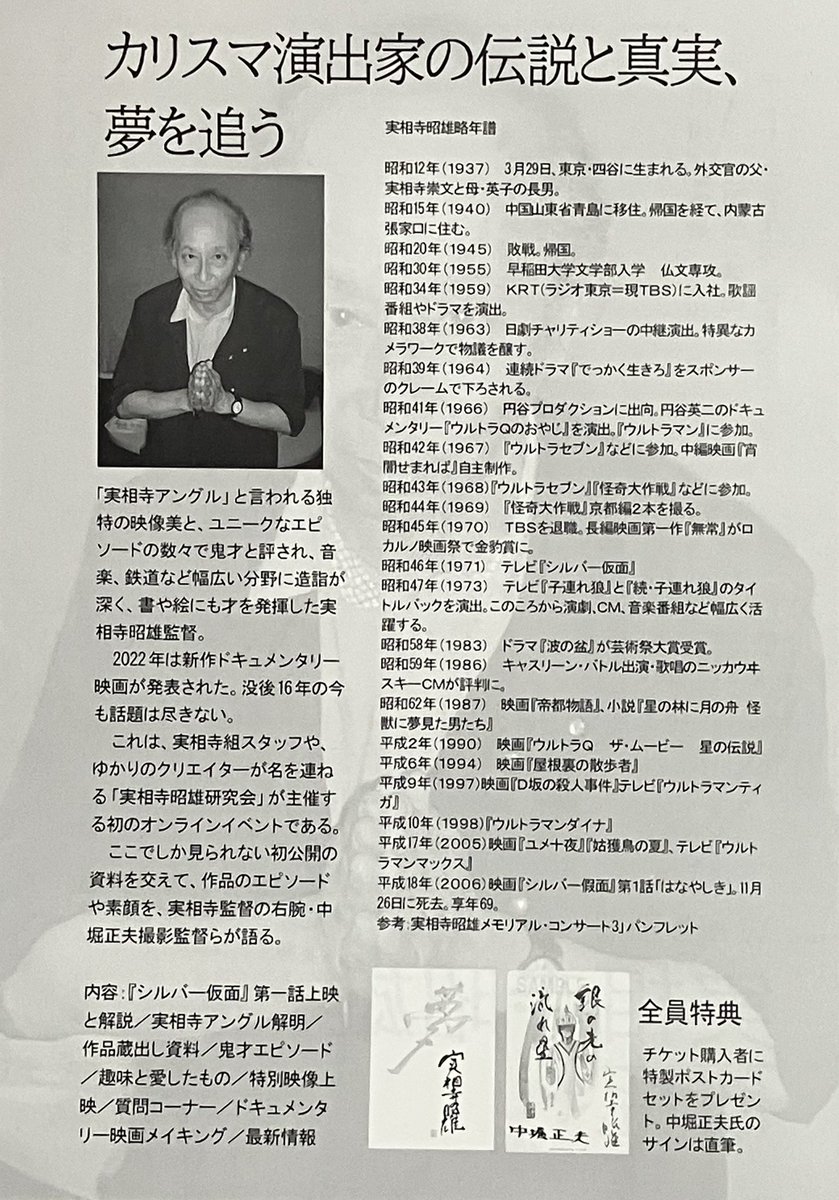 カリスマ演出家の伝説と真実、
夢を追う
実相寺昭雄略年譜
昭和12年(1937) 3月29日、東京・四谷に生まれる。外交官の父・
実相寺崇文と母・英子の長男。
昭和15年(1940) 中国山東省青島に移住。帰国を経て、内蒙古
張家口に住む。
昭和20年(1945) 敗戦。帰国。
昭和30年(1955) 早稲田大学文学部入学 仏文専攻。
昭和34年(1959) KRT(ラジオ東京=現TBS)に入社。歌謡
番組やドラマを演出。
昭和38年(1963) 日劇チャリティショーの中継演出。特異なカ
メラワークで物議を醸す。
昭和39年(1964) 連続ドラマ『でっかく生きろ』をスポンサー
のクレームで下ろされる。
昭和41年(1966) 円谷プロダクションに出向。円谷英二のドキュ
メンタリー『ウルトラQのおやじ』を演出。『ウルトラマン』に参加。
昭和42年(1967) 『ウルトラセブン』などに参加。中編映画『宵
闇せまれば』自主制作。
昭和43年(1968)『ウルトラセブン』『怪奇大作戦』などに参加。
昭和44年(1969) 『怪奇大作戦』京都編2本を撮る。
昭和45年(1970) TBSを退職。長編映画第一作『無常』がロ
カルノ映画祭で金豹賞に。
昭和46年(1971) テレビ『シルバー仮面』
昭和47年(1973) テレビ『子連れ狼』と『続・子連れ狼』のタイ
トルバックを演出。このころから演劇、CM、音楽番組など幅広く活
躍する。
昭和58年(1983) ドラマ『波の盆』が芸術祭大賞受賞。
昭和59年(1986) キャスリーン・バトル出演・歌唱のニッカウヰ
スキーCMが評判に。
昭和62年(1987) 映画『帝都物語』、小説『星の林に月の舟 怪
獣に夢見た男たち』
平成2年(1990) 映画『ウルトラQ ザ・ムービー 星の伝説』
平成6年(1994) 映画『屋根裏の散歩者』
平成9年(1997)映画『D坂の殺人事件』テレビ『ウルトラマンティ
ガ』
平成10年(1998)『ウルトラマンダイナ』
平成17年(2005)映画『ユメ十夜』『姑獲鳥の夏』、テレビ『ウルト
ラマンマックス』
平成18年(2006)映画『シルバー假面』第1話「はなやしき」。11月
26日に死去。享年69。
参考:実相寺昭雄メモリアル・コンサート3」パンフレット
「実相寺アングル」と言われる独
特の映像美と、ユニークなエピ
ソードの数々で鬼才と評され、音
楽、鉄道など幅広い分野に造詣が
深く、書や絵にも才を発揮した実
相寺昭雄監督。
2022年は新作ドキュメンタリー
映画が発表された。没後16年の今
も話題は尽きない。
これは、実相寺組スタッフや、
ゆかりのクリエイターが名を連ね
る「実相寺昭雄研究会」が主催す
る初のオンラインイベントである。
ここでしか見られない初公開の
資料を交えて、作品のエピソード
や素顔を、実相寺監督の右腕・中
堀正夫撮影監督らが語る。
内容:『シルバー仮面』第一話上映
と解説／実相寺アングル解明／
作品蔵出し資料／鬼才エピソード
／趣味と愛したもの／特別映像上
映／質問コーナー／ドキュメンタ
リー映画メイキング／最新情報
夢
実相寺昭雄
銀の光の
流れ星
実相寺昭雄
中堀正夫
全員特典
チケット購入者に
特製ポストカード
セットをプレゼン
ト。中堀正夫氏の
サインは直筆。